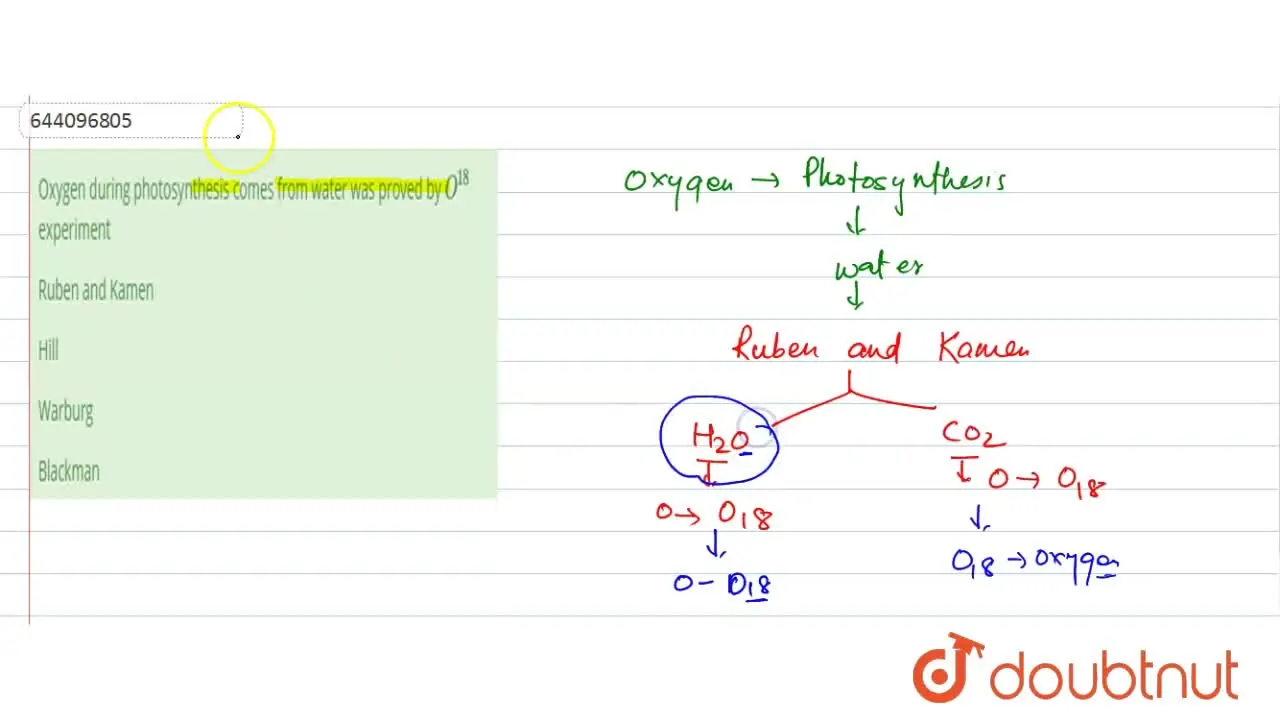 644096805
Oxygen during photosynthesis comes from water was proved by O¹⁸
experiment
Ruben and Kamen
Hill
Warburg
Blackman
Oxygen → Photosynthesis
↓
water
↓
Ruben and Kamen
H₂O
↓
O → O₁₈
↓
O - O₁₈
CO₂
↓ O → O₁₈
↓
O₁₈ → oxygen
doubtnut